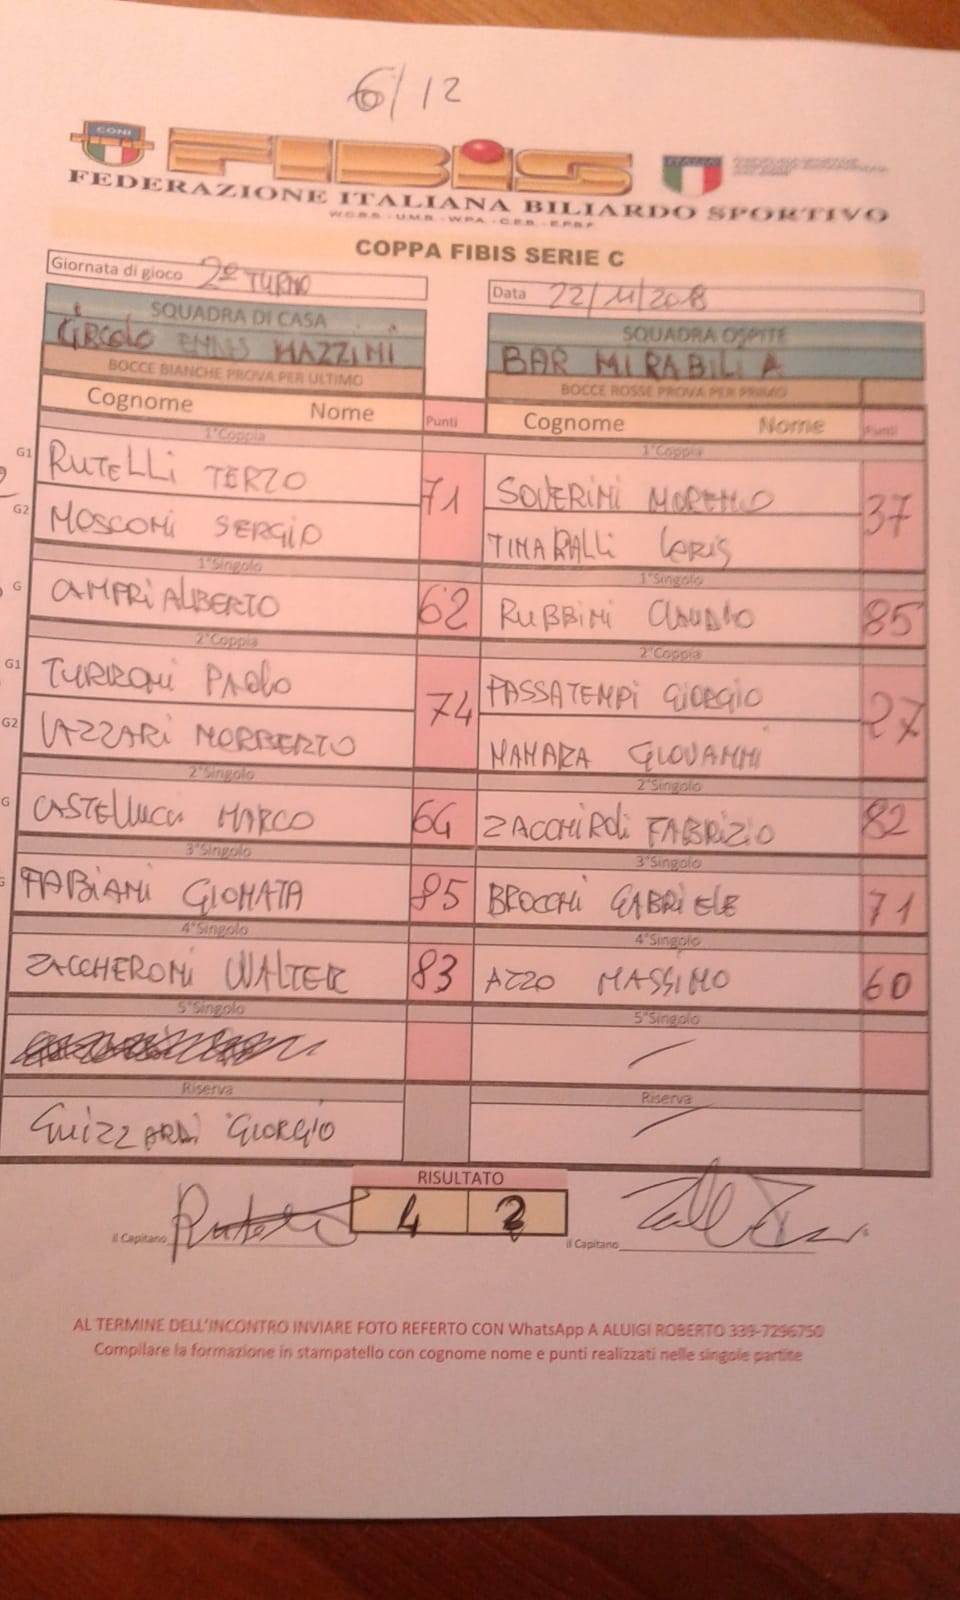 6/12
CONI
FIBIS
ITALIA
FEDERAZIONE ITALIANA BILIARDO SPORTIVO
COPPA FIBIS SERIE C
Giornata di gioco 2° TURNO
Data 22/11/2018
SQUADRA DI CASA
CIRCOLO ENNIO MAZZINI
BOCCE BIANCHE PROVA PER ULTIMO
SQUADRA OSPITE
BAR MIRABILIA
BOCCE ROSSE PROVA PER PRIMO
Cognome Nome Punti Cognome Nome Punti
1°Coppia 1°Coppia
G1 RUTELLI TERZO 71 SOVERINI MORENO 37
G2 MOSCONI SERGIO TIMARALLI LORIS
1°Singolo 1°Singolo
G CAMPRI ALBERTO 62 RUBBINI CLAUDIO 85
2°Coppia 2°Coppia
G1 TURRONI PAOLO 74 PASSATEMPI GIORGIO 27
G2 LAZZARI NORBERTO MANARA GIOVANNI
2°Singolo 2°Singolo
G CASTELLUCCI MARCO 64 ZACCHIROLI FABRIZIO 82
3°Singolo 3°Singolo
FABIANI GIONATA 85 BROCCHI GABRIELE 71
4°Singolo 4°Singolo
ZACCHERONI WALTER 83 AZZO MASSIMO 60
5°Singolo 5°Singolo
Riserva Riserva
GUIZZARDI GIORGIO
RISULTATO
4 2
il Capitano il Capitano
AL TERMINE DELL'INCONTRO INVIARE FOTO REFERTO CON WhatsApp A ALUIGI ROBERTO 339-7296750
Compilare la formazione in stampatello con cognome nome e punti realizzati nelle singole partite